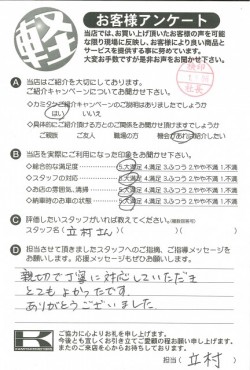 軽
お客様アンケート
当店では、お買い上げ頂いたお客様の声を可能
な限り現場に反映し、お客様により良い商品と
サービスを提供する事に努めています。
大変お手数ですが是非お声をお聞かせ下さい。
社長
A 当店はご紹介を大切にしております。
ご紹介キャンペーンについてお聞かせ下さい。
◇カミタケご紹介キャンペーンのご説明はありましたでしょうか
はい いいえ
◇具体的にご紹介頂ける方とのご関係をお聞かせ頂けますでしょうか
ご親族 ご友人 職場の方 機会があれば紹介したい
B 当店を実際にご利用になった印象をお聞かせ下さい。
◇総合的な満足度 5.大満足 4.満足 3.ふつう 2.やや不満 1.不満
◇スタッフの対応 5.大満足 4.満足 3.ふつう 2.やや不満 1.不満
◇お店の雰囲気、清掃 5.大満足 4.満足 3.ふつう 2.やや不満 1.不満
◇納車時のお車の状態 5.大満足 4.満足 3.ふつう 2.やや不満 1.不満
C 評価したいスタッフがいれば教えてください。
スタッフ名( 立村さん )
D 担当させて頂きましたスタッフへのご指摘、ご指導メッセージを
お願いします。応援メッセージもぜひお願いします。
親切で丁寧に対応していただき
とてもよかったです。
ありがとうございました。
K
ご協力に心よりお礼を申し上げます。
今後とも宜しくお引き立てご愛顧の程お願い申し上げます。
またのご来店を心からお待ちしております。
担当( 立村 )